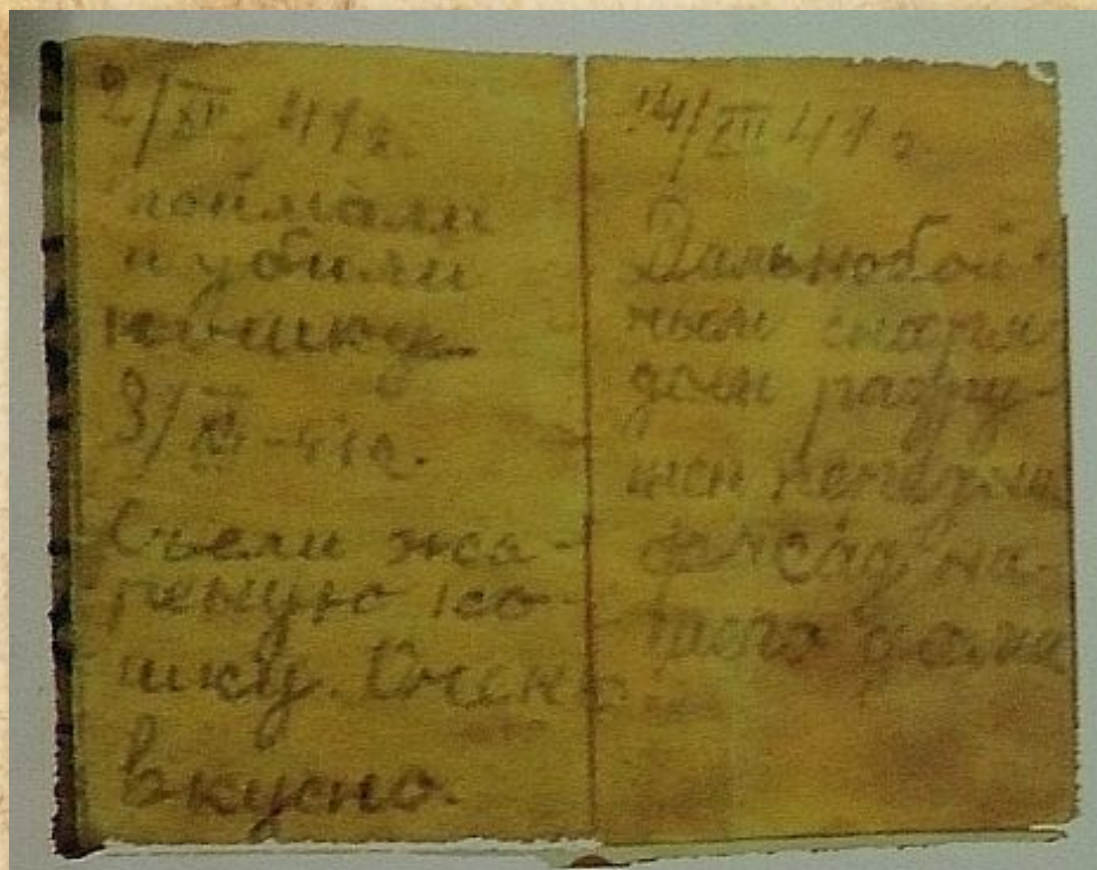 2/XII 41 г.
поймали
и убили
кошку
3/XII-41г.
Съели жа-
реную ко-
шку. Очень
вкусно.
14/XII 41 г
Дальнобой-
ным снаря-
дом разру-
шен
фасад на-
шего дома